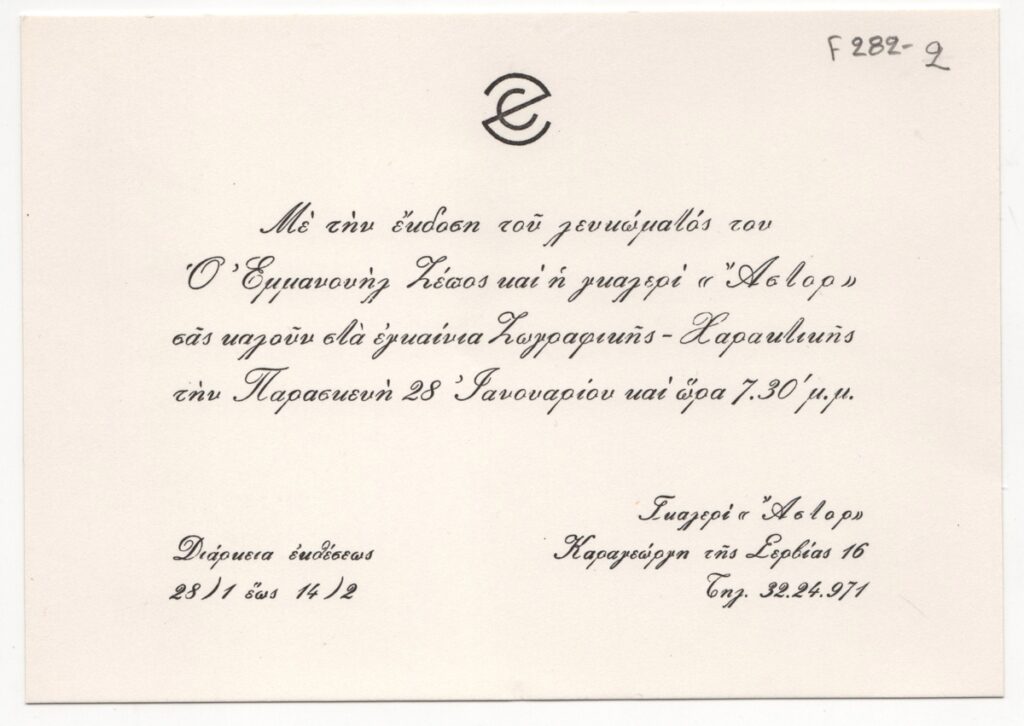 F 282-2
Μὲ τὴν ἔκδοση τοῦ λευκώματός του
Ὁ Ἐμμανουὴλ Ζέπος καὶ ἡ γκαλερὶ « Ἄστορ»
σᾶς καλοῦν στὰ ἐγκαίνια Ζωγραφικῆς - Χαρακτικῆς
τὴν Παρασκευὴ 28 Ἰανουαρίου καὶ ὥρα 7.30' μ.μ.
Γκαλερὶ « Ἄστορ»
Διάρκεια ἐκθέσεως
28)1 ἕως 14)2
Καραγεώργη τῆς Σερβίας 16
Τηλ. 32.24.971